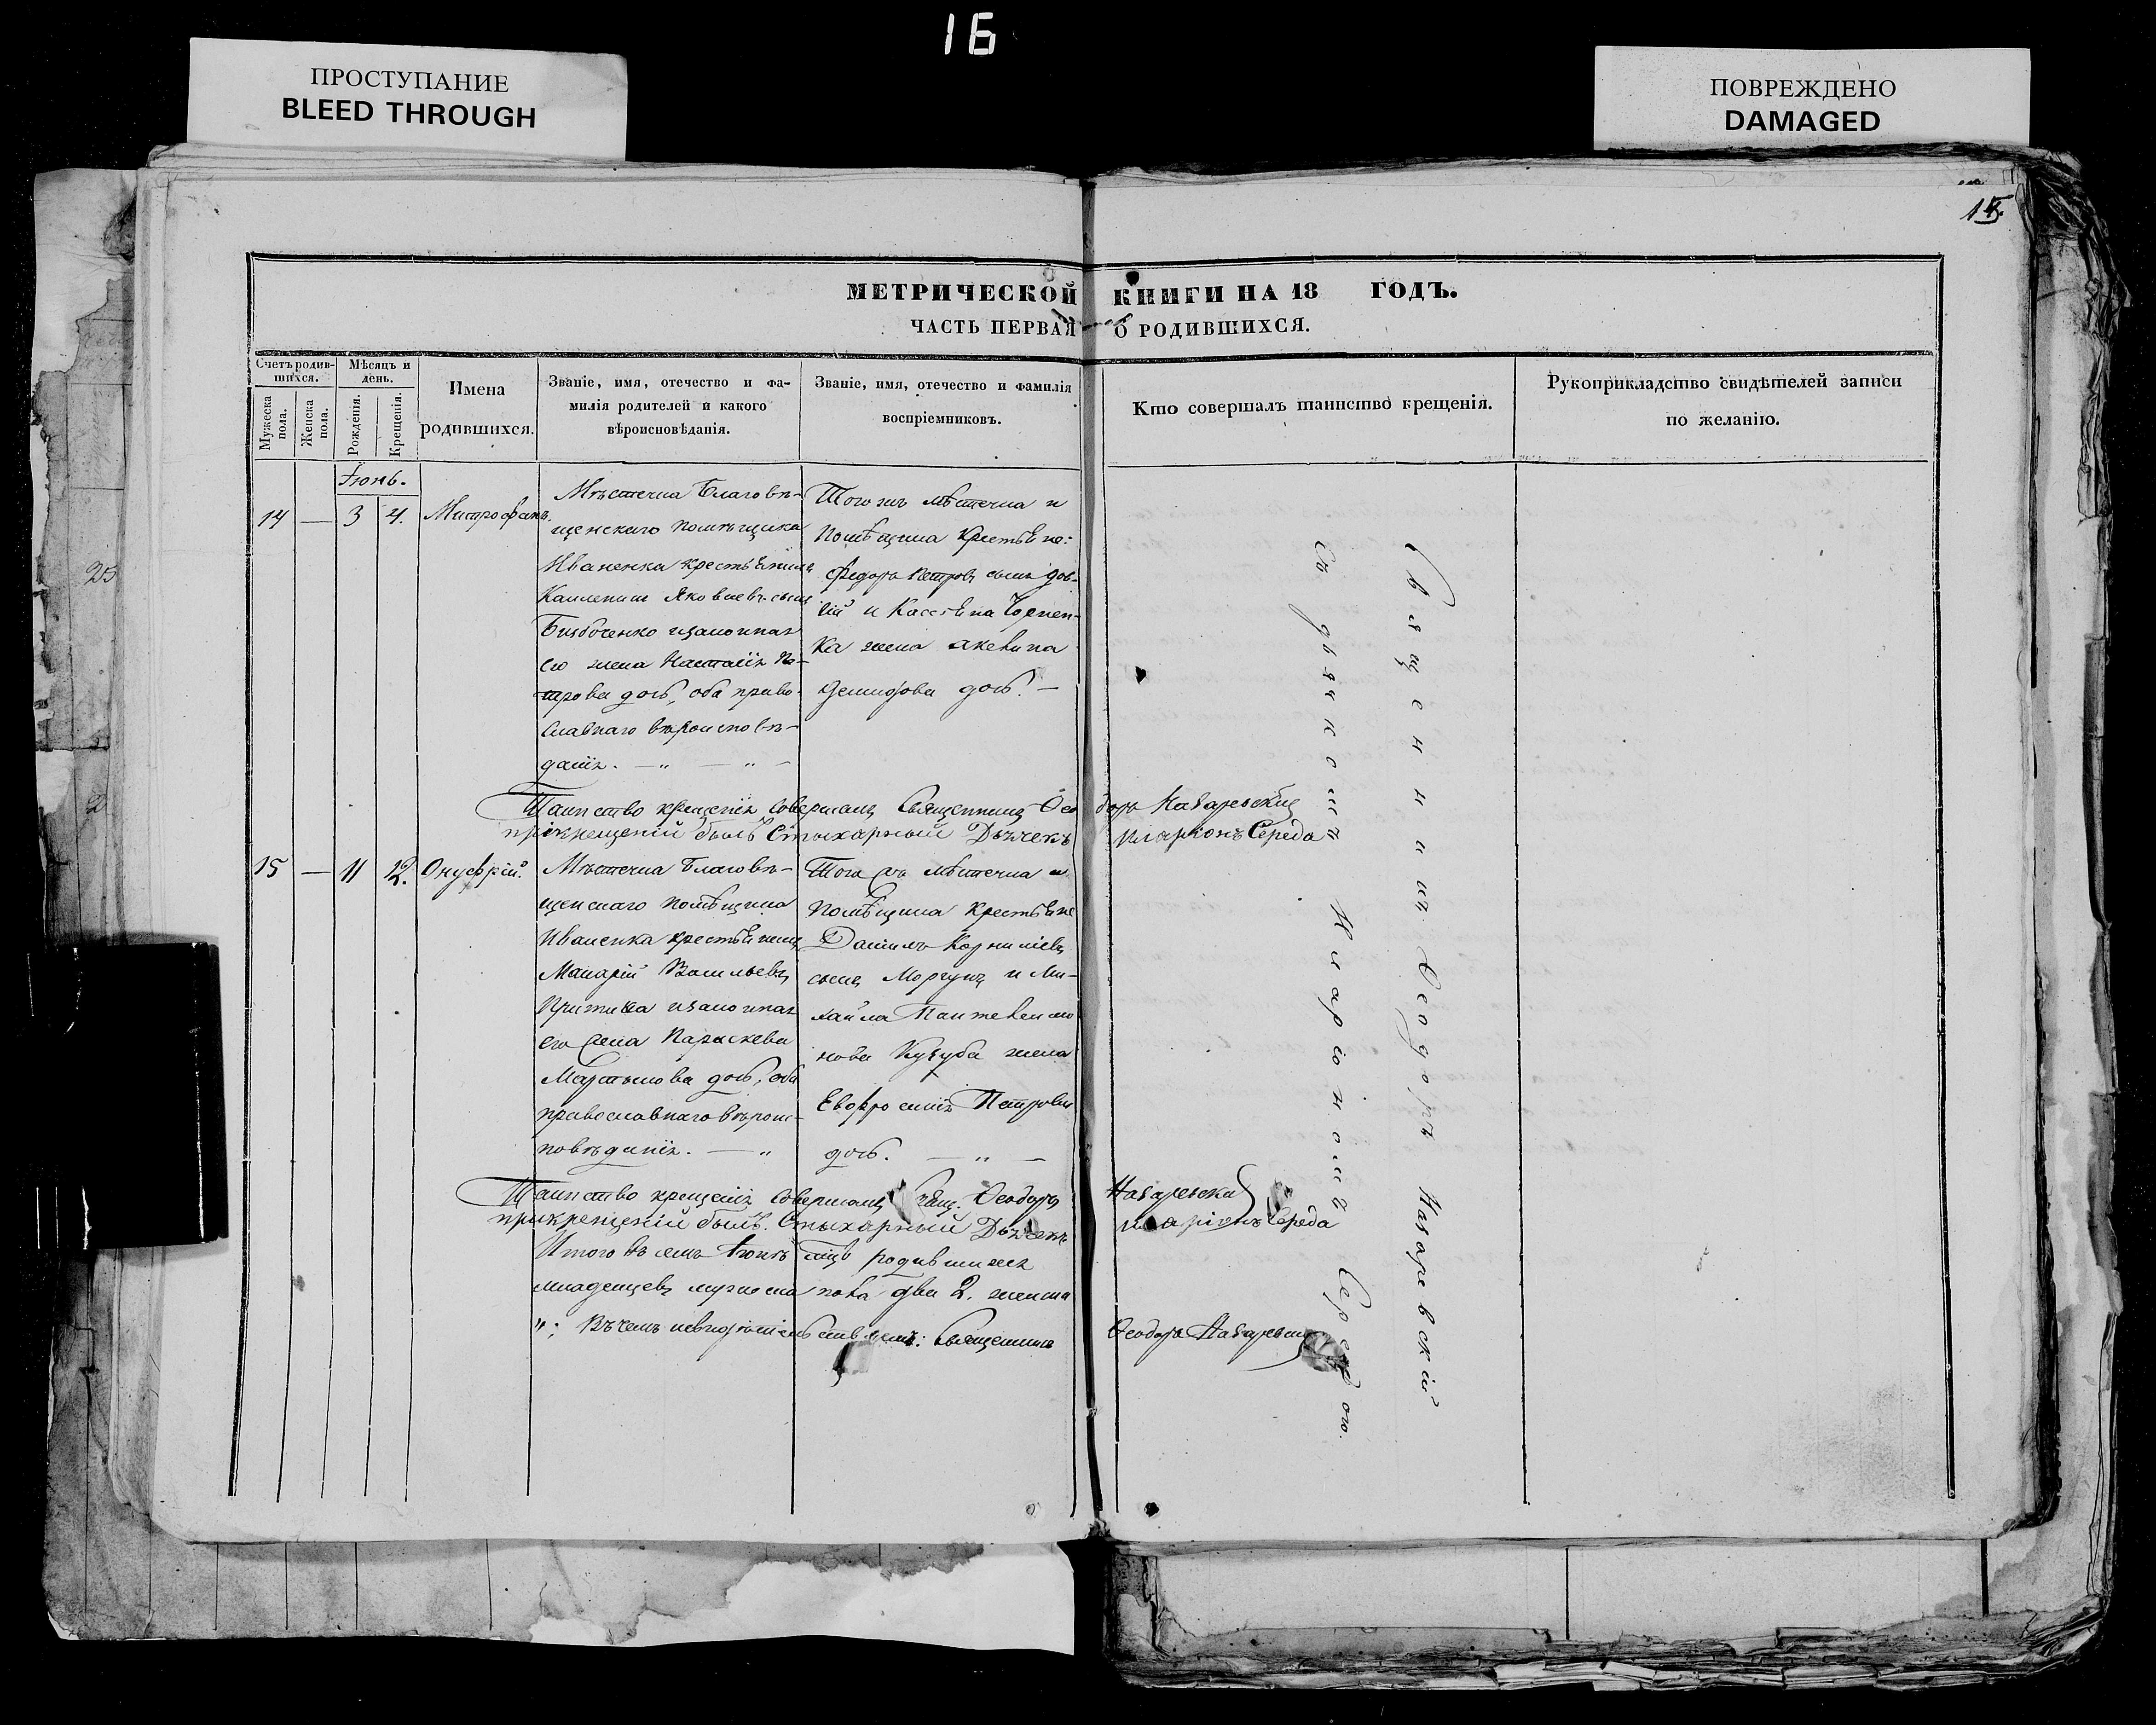 16
ПРОСТУПАНИЕ
BLEED THROUGH
ПОВРЕЖДЕНО
DAMAGED
МЕТРИЧЕСКОЙ КНИГИ НА 18 ГОДЪ.
ЧАСТЬ ПЕРВАЯ О РОДИВШИХСЯ.
Счетъ родив-
шихся.
Мужеска пола.
Женска пола.
Мѣсяцъ и
день.
Рожденія.
Крещенія.
Имена
родившихся.
Званіе, имя, отечество и фа-
милія родителей и какого
вѣроисповѣданія.
Званіе, имя, отечество и фамилія
воспріемниковъ.
Кто совершалъ таинство крещенія.
Рукоприкладство свидѣтелей записи
по желанію.
Іюнь.
14 — 3 4. Митрофанъ.
Мѣстечка Благовѣ-
щенскаго помѣщика
Иваненка крестьянинъ
Яковлевъ сынъ
и законная
его жена Настасія Пе-
трова дочь, оба право-
славнаго вѣроисповѣ-
данія. — „ — „ —
Того жъ мѣстечка и
помѣщика крестьяне:
Федоръ Петровъ сынъ Дов-
гій и
жена
Демидова дочь. —
Таинство крещенія совершалъ Священникъ Ѳеодоръ Назаревскій
при крещеніи былъ Стихарный Дьячекъ Иларіонъ Середа
15 — 11 12. Онуфрій.
Мѣстечка Благовѣ-
щенскаго помѣщика
Иваненка крестьянинъ
Макарій Васильевъ
и законная
его жена Параскева
Мартынова дочь, оба
православнаго вѣроис-
повѣданія. — „
Того жъ мѣстечка и
помѣщика крестьяне
Даніилъ Корниліевъ
сынъ Моргунъ и Ми-
хайла Пантелеимо
нова Кузуба жена
Евфросинія Петрова
дочь. — „ —
Таинство крещенія совершалъ Свящ. Ѳеодоръ Назаревскій
при крещеніи былъ Стихарный Дьячекъ Иларіонъ Середа
Итого въ семъ Іюнѣ мцѣ родившихся
младенцевъ мужеска пола два 2. женска
„; Въ чемъ Священникъ Ѳеодоръ Назаревскій
Священникъ Ѳеодоръ Назаревскій
Съ дьячкомъ Иларіономъ Середою.